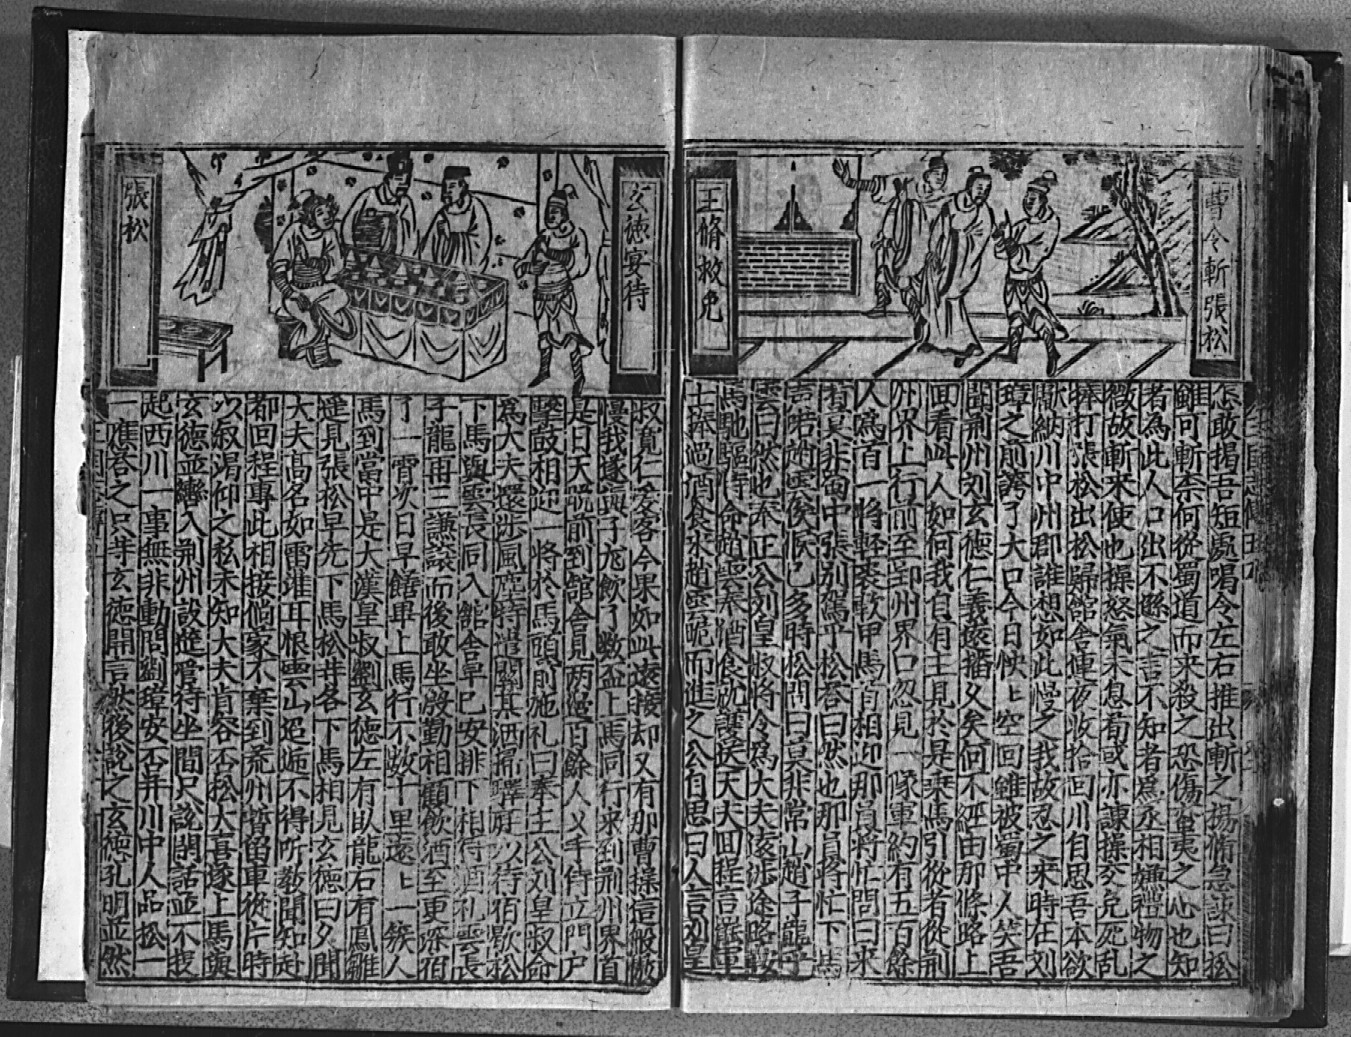 曹令斬張松
王脩救免
怎敢揭吾短處喝令左右推出斬之楊脩急諫曰松
雖可斬柰何從蜀道而來殺之恐傷蛮夷之心也知
者為此人口出不遜之言不知者爲丞相嫌禮物之
微故斬來使也操怒氣未息荀或亦諫操交免死乱
棒打張松出松歸館舍連夜收拾回川自思吾本欲
獻納川中州郡誰想如此慢之我故忍之來時在刘
璋之前誇了大口今日怏上空回雖被蜀中人笑吾
聞荆州刘玄德仁義遠播久矣何不經由那條路上
面看此人如何我自有主見於是乗馬引從者從荆
州界上行前至郢州界口忽見一隊軍約有五百餘
人爲首一將輕裘軟甲馬首相迎那員將忙問曰來
者莫非匈中張別駕乎松荅曰然也那員將忙下馬
声喏趙雲俟候已多時松問曰莫非常山趙子龍乎
雲曰然也奉正公刘皇叔將令為大夫遠涉途路鞍
馬馳驅特命趙雲奉酒食
士捧過酒食來趙雲跪而進之公自思曰人言刘皇
玄德宴待
張松
叔寬仁愛客今果如此遠接却又有那曹操這般慠
慢我遂與子龍飲了数盃上馬同行来到荆州界首
是日天晩前到舘舍見两邊百餘人义手侍立門户
擊鼔相迎一將於馬頭前施礼曰奉主公刘皇叔命
爲大夫遠涉風塵特遣關某洒掃驛庭以待宿歇松
下馬與雲長同入舘舍早已安排下相待酒礼雲長
子龍冉三謙讓而後敢坐殷勤相勸飲酒至更深宿
了一霄次日早饍畢上馬行不数十里遠上一簇人
馬到當中是大漢皇叔劉玄德左有臥龍右有鳳雛
逢見張松早先下馬松幷各下馬相見玄德曰夕聞
大夫髙名如雷灌耳恨雲山迢逓不得听教聞知赴
都回程專此相接倘家不棄到荒州暫畱車從片時
以叙渴仰之私未知大夫肯容否松大喜遂上馬與
玄德並轡入荆州設筵管待坐間只說閒話並不提
起西川一事無非動問劉璋安否幷川中人品松一
一應荅之只等玄德開言然後說之玄德孔明並然